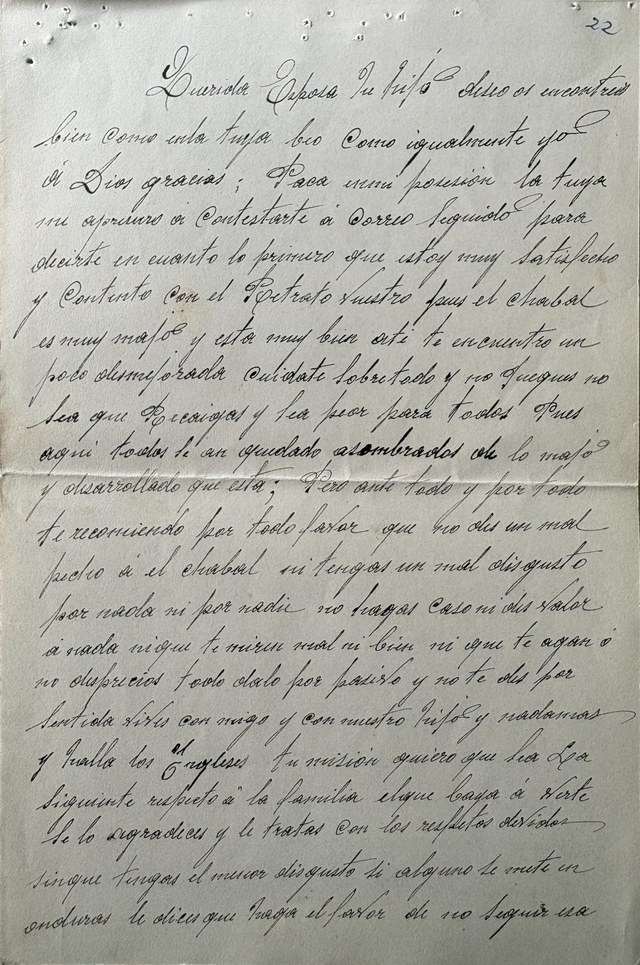 22
Querida Esposa tu hijo deseo os encontreis
bien como enla tuya beo como igualmente yo
á Dios gracias; Paca enmi posesión la tuya
me apresuro á Contestarte á Correo Seguido para
decirte en cuanto lo primero que estoy muy Satisfecho
y Contento con el Retrato Vuestro pues el chabal
es muy majo y esta muy bien ati te encuentro un
poco desmejorada cuidate Sobretodo y no Juegues no
Sea que Recaigas y Sea peor para todos Pues
aqui todos se an quedado asombrados de lo majo
y desarrollado que esta; Pero ante todo y por todo
te recomiendo por todo favor que no des un mal
pecho á el chabal ni tengas un mal disgusto
por nada ni por nadie no hagas Caso ni des Valor
á nada nique te miren mal ni bien ni que te agan ó
no desprecios todo dalo por pasivo y no te des por
Sentida Vives con migo y con nuestro hijo y nadamas
y halla los Engleses tu misión quiero que Sea La
Siguiente respecto á la familia elque baya á Verte
Se lo agradeces y le tratas con los respetos devidos
sinque tengas el menor disgusto si alguno se mete en
onduras le dices que haga el favor de no Seguir esa